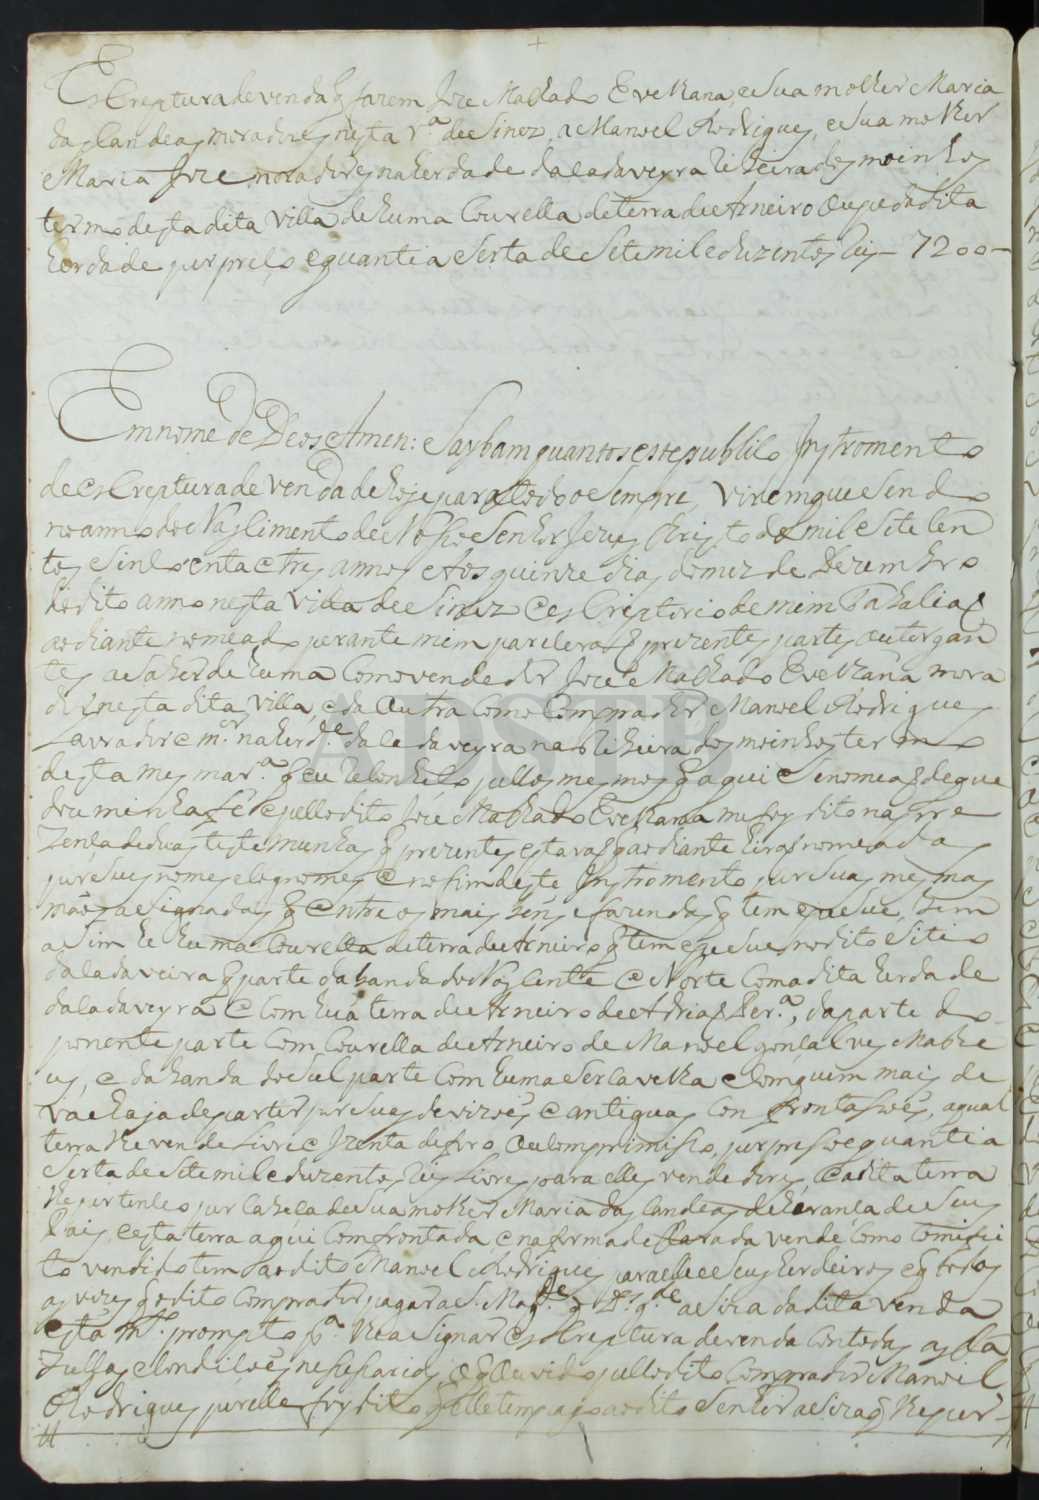 EsCreptura de venda q̃ fazem Joze Machado Evelhana, e Sua molher Maria
das Candeas moradores nesta v.ª de Sines, a Manoel Rodrigues, e Sua molher
Maria Joze moradores na herdade dalada veyra Ribeira dos moinhos
termo desta dita Villa de huma Courella de terra de Arneiro Aupe da dita
herdade por preso e quantia Serta de Sete mil e duzentos Reis - 7200 -
Em nome de Deos Amen: Saybam quantos este publico Instromento
de esCreptura de venda de hoje para todo o sempre, virem que Sendo
no anno do Nascimento de Nosso Senhor Jezus Christo de mil e Sete Cen
tos e Sincoenta e tres annos Aos quinze dias do mez de Dezembro
do dito anno nesta Villa de Sines e esCriptorio de mim Tabaliaõ
ao diante nomeado perante mim pareceraõ prezentes partes outorgan
tes a saber de huma Como vendedor Joze Machado Evelhana mora
dor nesta dita Villa, e da Outra Como Comprador Manoel Rodrigues
Lavrador e m.ºr na herd.e dalada veyra na Ribeira dos moinhos termo
desta mes ma v.ª q̃ eu Reconheço pellos mes mos q̃ aqui Se nomeaõ de que
dou minha fé e pello dito Joze Machado Evelhana me foy dito na pre
zença de duas testemunhas q̃ prezentes estavaõ q̃ ao diante hiraõ nomeadas
por Seus nomes e Cognomes e no fim deste Instromento por Suas mes mas
maõs aSignadas q̃ entre os mais bens e fazendas q̃ tem e pesue, bem
aSim he huma Courella de terra de Arneiro q̃ tem e pesue no dito Sitio
dalada veira q̃ parte da banda do Naçente e Norte Com a dita herdade
dalada veyra e Com huã terra de Arneiro de Adriaõ Per.ª, da parte do
ponente parte Com Courella de Arneiro de Manoel gonsalves Mathe
us, e da banda do Sul parte Com huma Serca velha e Com quem mais de
va e haja de partir por Seus devizoẽs e antiguas Confrontasoẽs, a qual
terra lhe vende Livre e Izenta de foro Ou Comprimisso, por preso e quantia
Serta de Sete mil e duzentos Reis Livres para elles vendedores, e a dita terra
lhe pertence por Cabeça de Sua molher Maria das Candeas de heranca de Seus
Pais, e esta terra aqui Comfrontada, e na forma de Clarada vende Como Com ifei
to vendido tem ao dito Manoel Rodrigues para elle e Seus herdeiros e q̃ todas
as vezes q̃ o dito Comprador pagar a S. Mag.de q̃ D.s g.de a Siza da dita venda
esta m.to prompto p.ª lhe aSignar esCreptura de venda Com todas as Cla
zullas e Condicoẽs nesesarias, e q̃ Ouvido pello dito Comprador Manoel
Rodrigues por elle foy dito q̃ elle tem pago ao dito Senhor a Siza q̃ lhe per-